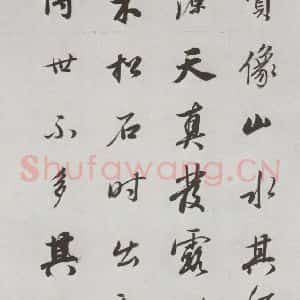 像山水其
天真發露
松石时出
世不多其
Shufawang.CN